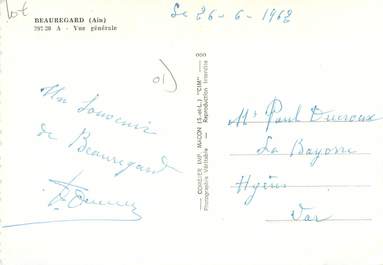 lot
BEAUREGARD (Ain)
797-20 A - Vue générale
Le 26-6-1962
01)
Un Souvenir
de Beauregard
COMBIER IMP. MACON (S.-et-L.) "CIM"
Photographie Véritable - Reproduction Interdite
Mr Paul Ducroux
La Bayorre
Hyères
Var